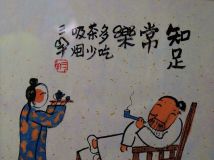 知足
常
樂
多吃
茶少
吸烟
三